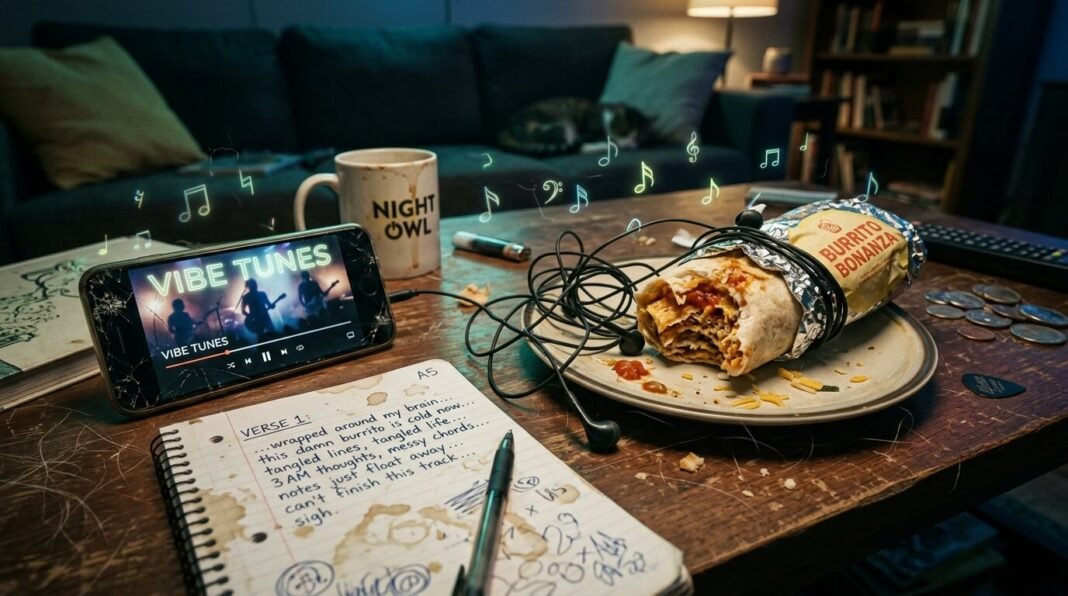 VIBE TUNES
VIBE TUNES
NIGHT
OWL
BURRITO
BONANZA
A5
VERSE 1:
...wrapped around my brain...
this damn burrito is cold now...
tangled lines, tangled life...
3 AM thoughts, messy chords...
notes just float away...
can't finish this track...
sigh.